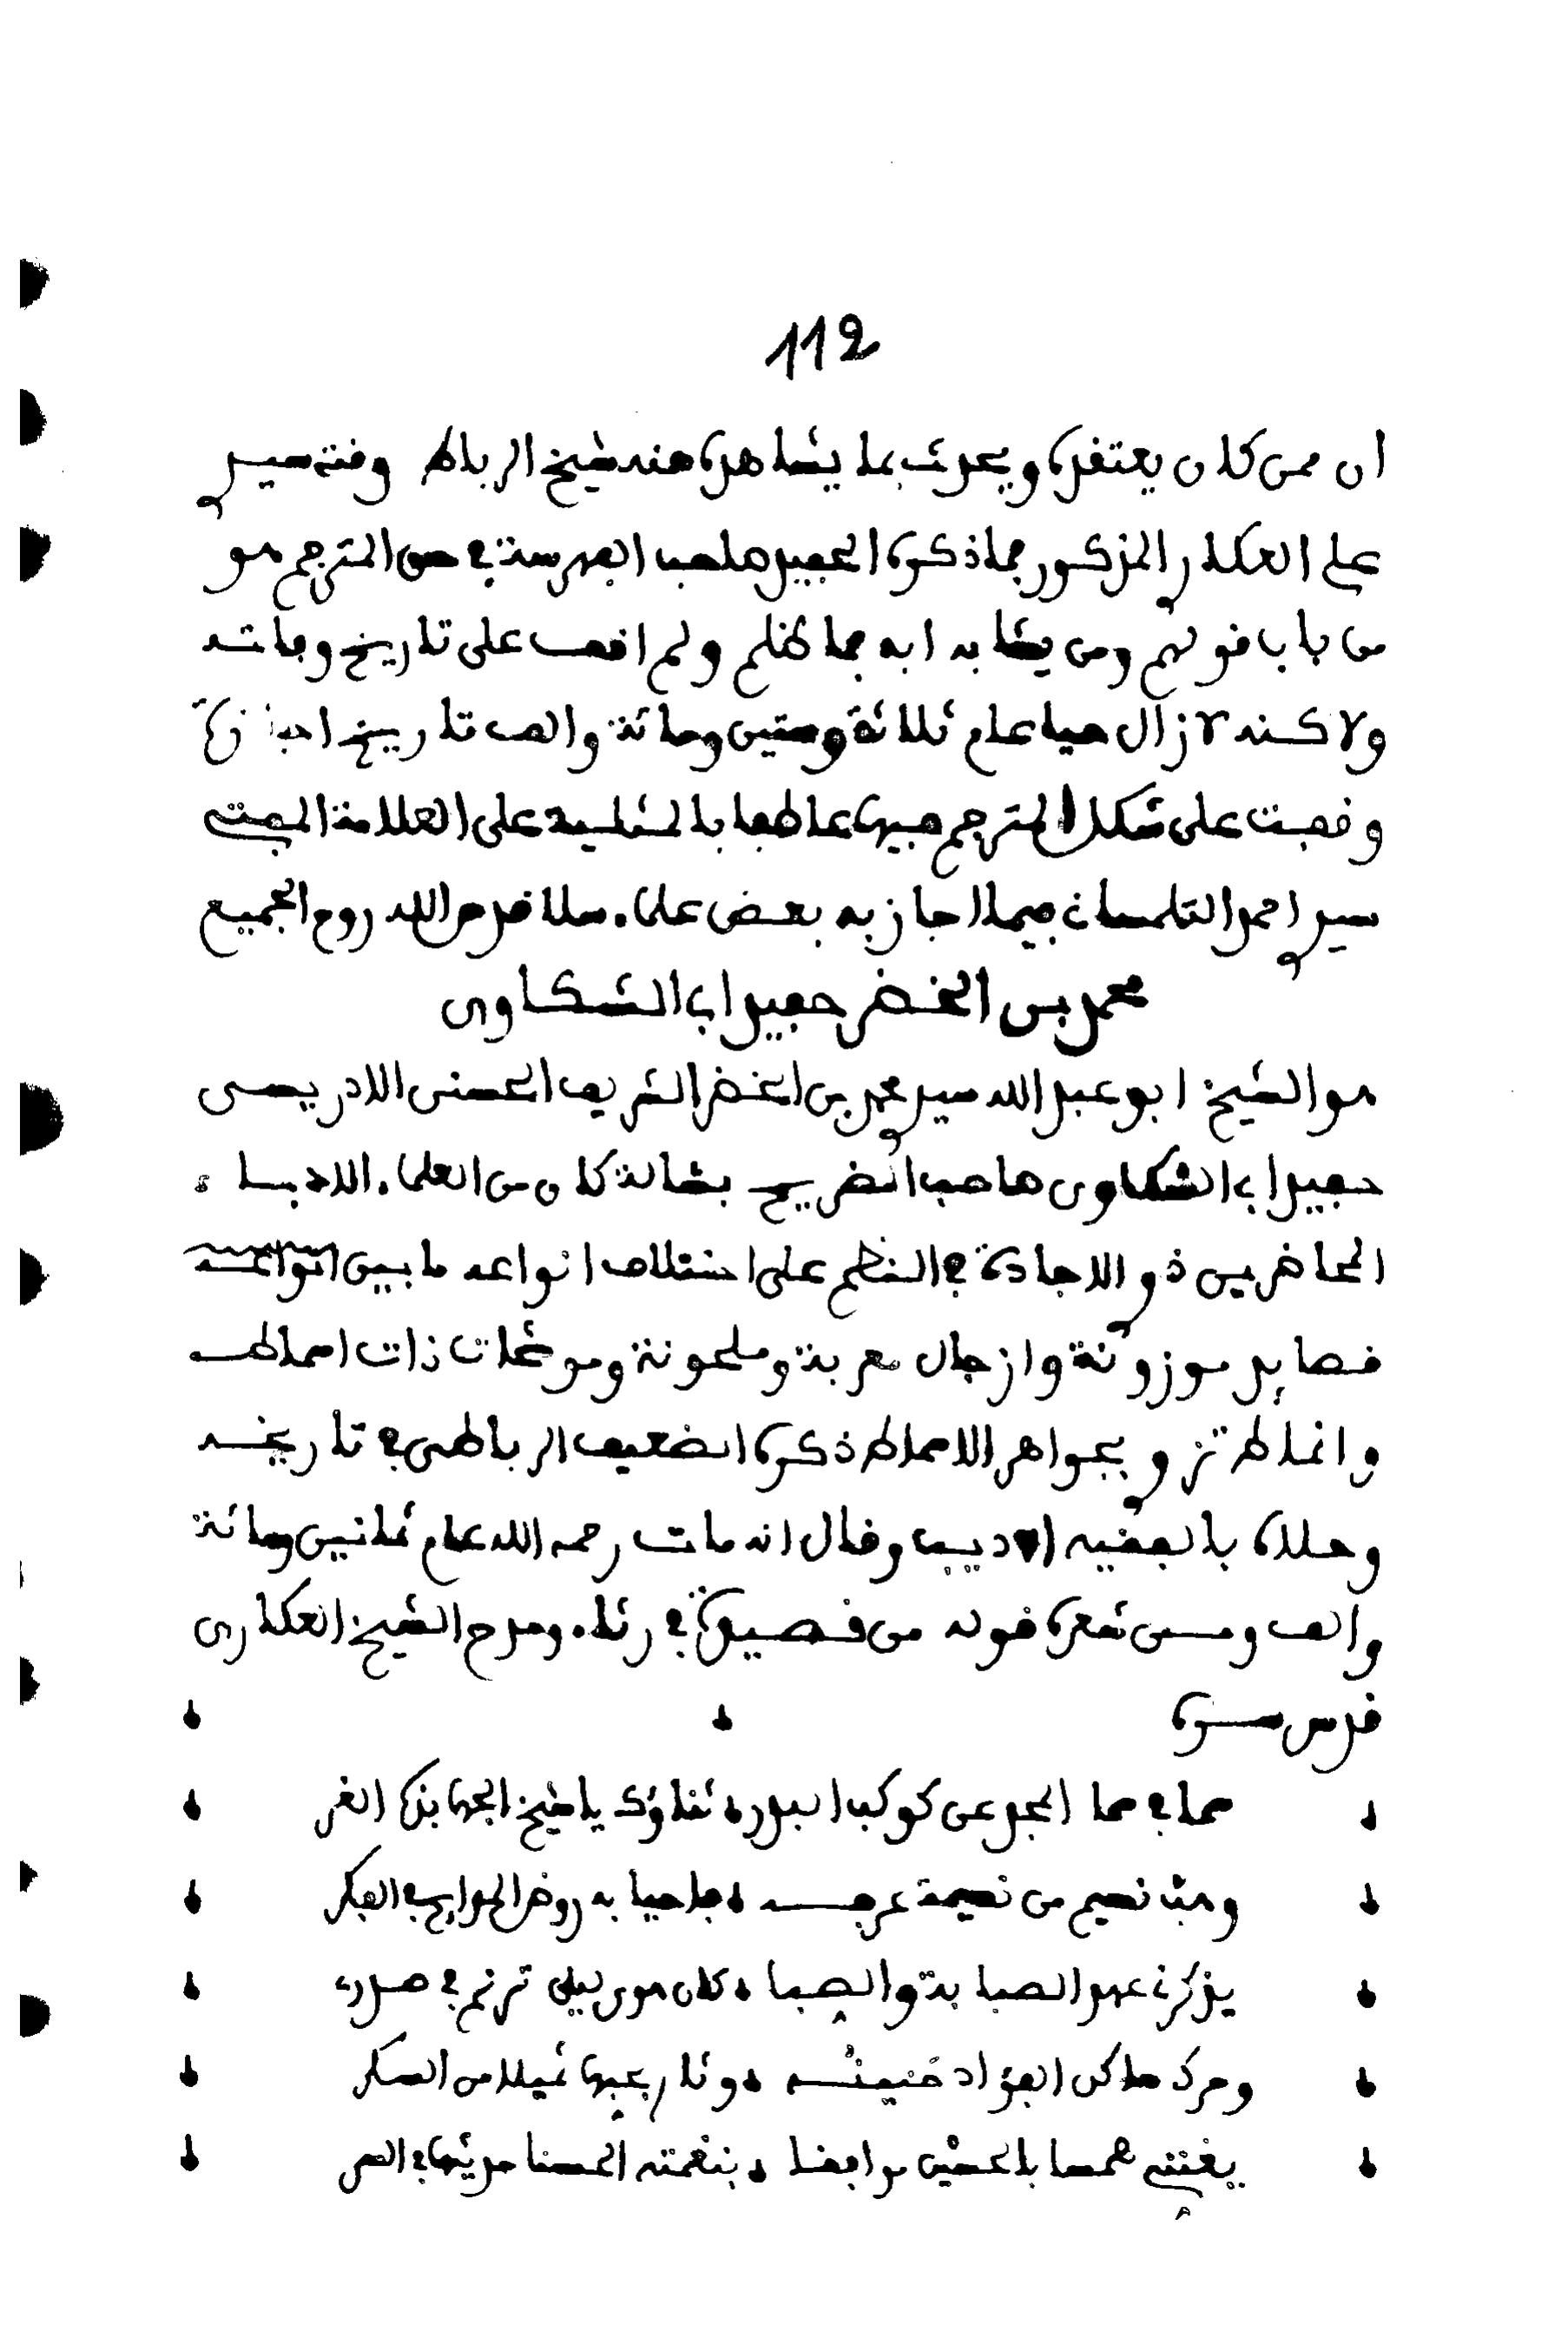 112
ان ممن كان يعتقده ويحدث بما يشاهده منه شيخ الرباط وقته سيدي
علي العكاري المذكور مما ذكره الحفيد صاحب الفهرسة في حق المترجم هو
من باب قولهم ومن يشابه ابه فما ظلم ولم اقف على تاريخ وفاته
ولاكنه لازال حيا عام ثلاثة وستين ومائة والف تاريخ اجازة
وقفت على شكل المترجم فيها عاطفا بالمثلية على العلامة المفتي
سيدي احمد التلمساني فيما اجاز به بعض علماء سلا قدس الله روح الجميع
محمد بن الخضر حفيد ابي الشكاوى
هو الشيخ ابو عبد الله سيدي محمد بن الخضر الشريف الحسنى الادريسى
حفيد ابي الشكاوى صاحب الضريح بشالة كان من العلماء الادباء
المحاضرين ذوي الاجادة في النظم على اختلاف انواعه ما بين انواعه
قصايد موزونة وازجال معربة وملحونة وموشحات ذات اسماط
وانماط تزري بجواهر الاسماط ذكره الضعيف الرباطى في تاريخه
وحلاه بالفقيه الاديب وقال انه مات رحمه الله عام ثمانين ومائة
والف ومن شعره قوله من قصيدة في رثاء ومدح الشيخ العكارى
قدس سره
سما في سما المجد عن كوكب البدر ثناؤك يا شيخ الجهابذة الغر
وهب نسيم من نسيمة عرفه فاحيا به روض المدايح في الفكر
يذكرني عهد الصبابة والصبا كان هوى ليلى ترنم في صدره
وحرك ساكن الفؤاد حنينه وثار بها ثيلا من السكر
يغنني همسا بالحشى بنغمته الحسنا حديثها في السر